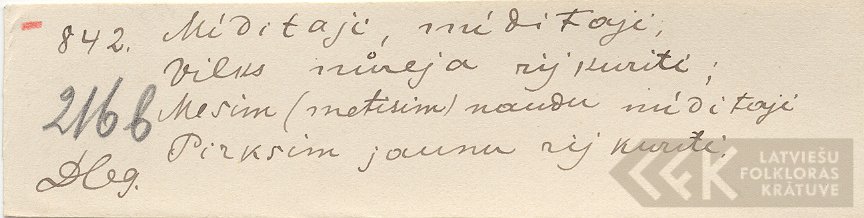 842. Mīditaji, mīditaji,
Vilks nůreja rijkuriti;
Mesim (metisim) naudu mīditaji
Pirksim jaunu rijkuriti.
216b
Dbg.
LATVIEŠU
FOLKLORAS
KRĀTUVE